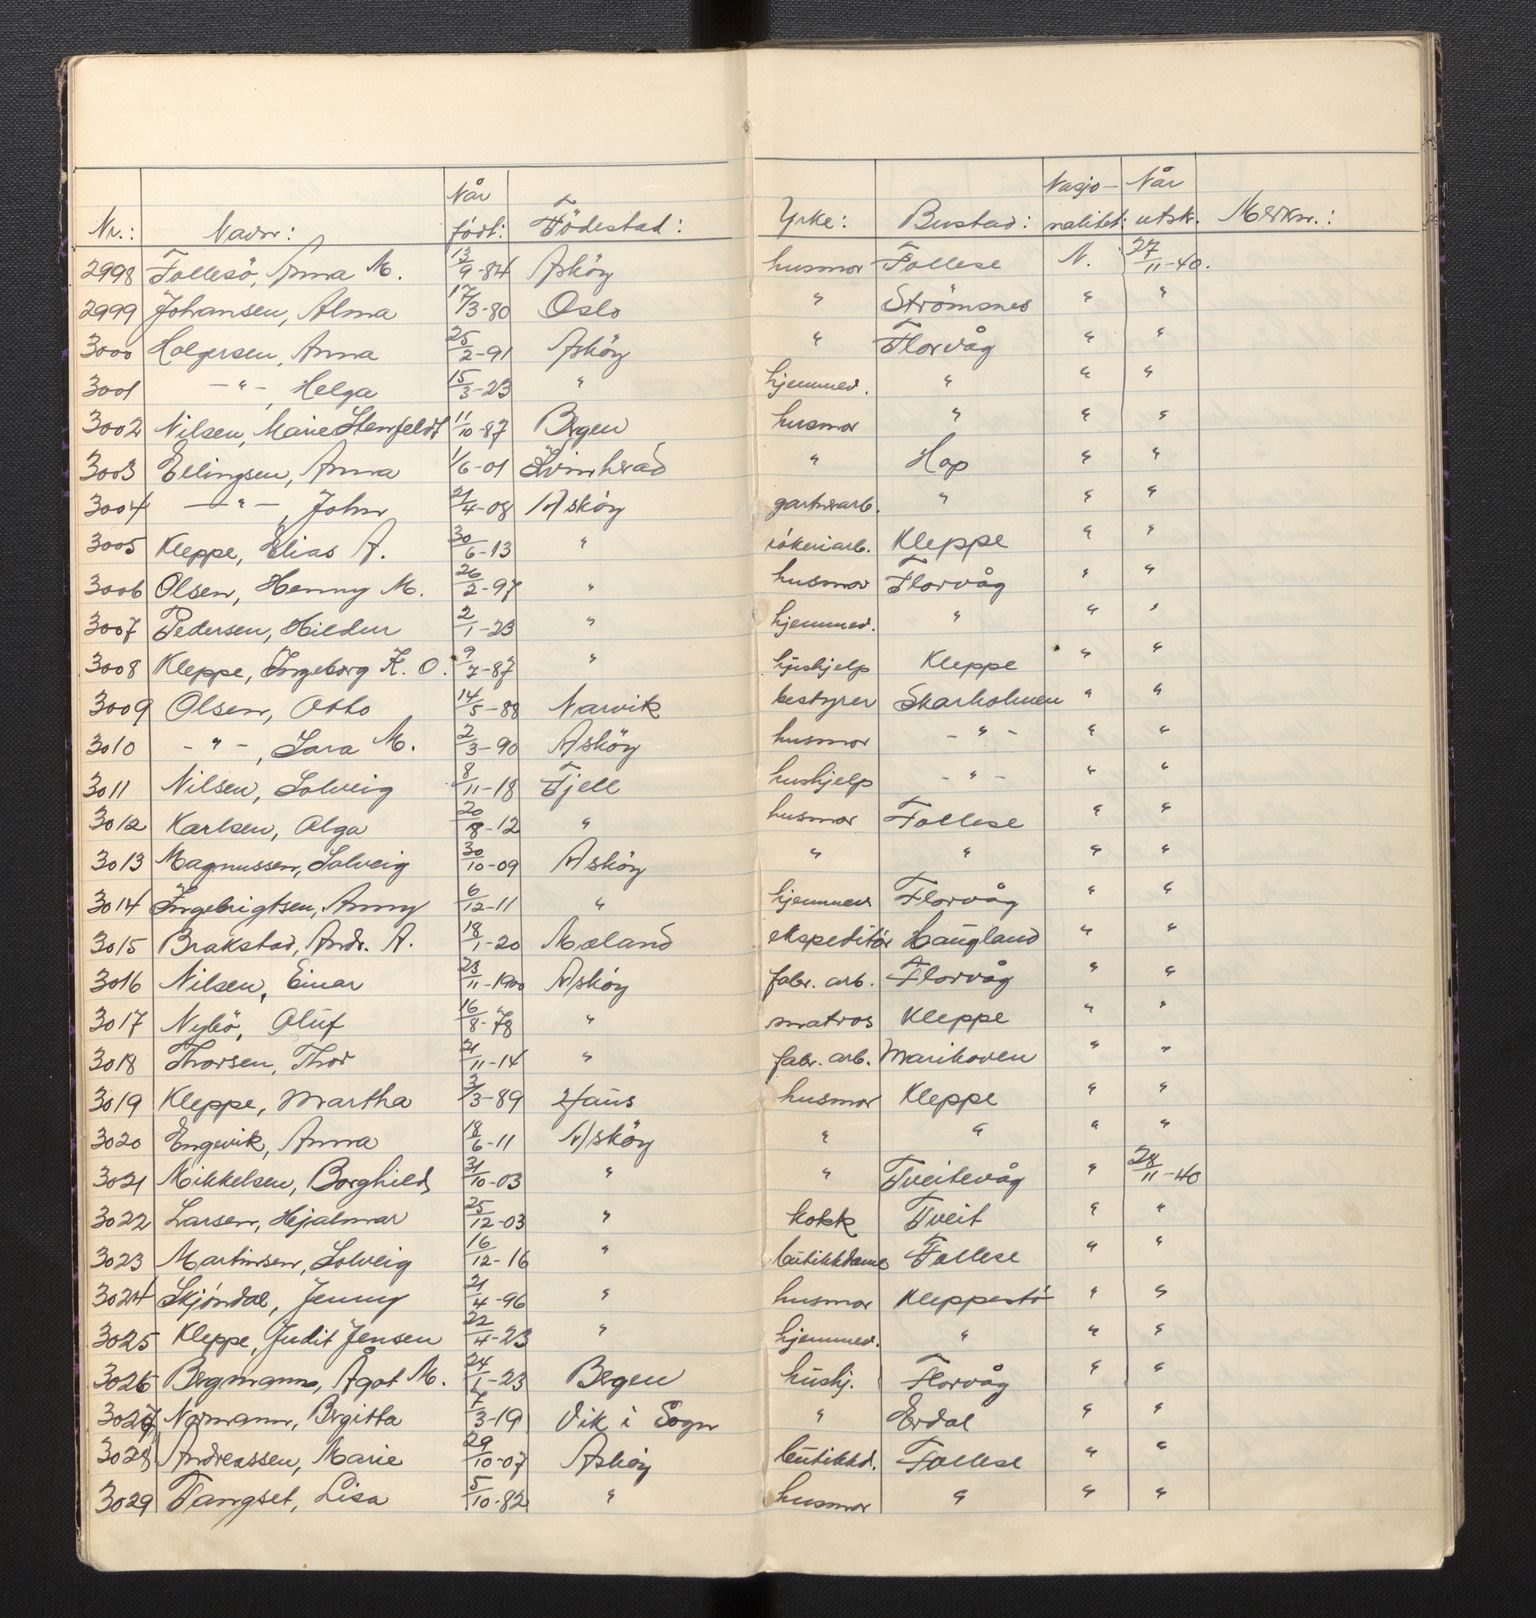 Nr.: Navn: Når født: Födestad: Yrke: Bustad: Nasjonalitet: Når utsk. Merkn.:
2998 Follesö, Anna M. 13/9-84 Asköy husmor Follese N. 27/11-40.
2999 Johansen, Alma 17/3-80 Oslo " Strömsnes " "
3000 Holgersen, Anna 25/2-91 Asköy " Florvåg " "
3001 -"-, Helga 15/3-23 " hjemmev. " " "
3002 Nilsen, Marie Stenfeldt 11/10-87 Bergen husmor " " "
3003 Ellingsen, Anna 1/6-01 Kvinherad " Hop " "
3004 -"-, John 21/4-08 Asköy gartnerarb. " " "
3005 Kleppe, Elias A. 30/6-13 " rökeriarb. Kleppe " "
3006 Olsen, Henny M. 26/2-97 " husmor Florvåg " "
3007 Pedersen, Hildur 2/1-23 " hjemmev. " " "
3008 Kleppe, Ingeborg K. O. 9/7-87 " hushjelp Kleppe " "
3009 Olsen, Otto 14/5-88 Narvik bestyrer Skarholmen " "
3010 -"-, Sara M. 2/3-90 Asköy husmor -"- " "
3011 Nilsen, Solveig 8/11-18 Fjell hushjelp -"- " "
3012 Karlsen, Olga 20/8-12 " husmor Follese " "
3013 Magnussen, Solveig 30/10-09 Asköy " " " "
3014 Ingebrigtsen, Anny 6/12-11 " hjemmev. Florvåg " "
3015 Brakstad, Andr. A. 18/1-20 Mæland ekspeditör Haugland " "
3016 Nilsen, Einar 23/11-1900 Asköy fabr. arb. Florvåg " "
3017 Nybö, Oluf 16/8-78 " matros Kleppe " "
3018 Thorsen, Thor 21/11-14 " fabr. arb. Marikoven " "
3019 Kleppe, Martha 3/3-89 Haus husmor Kleppe " "
3020 Engevik, Anna 18/6-11 Asköy " " " "
3021 Mikkelsen, Borghild 31/10-03 " " Tveitevåg " 28/11-40
3022 Larsen, Hjalmar 25/12-03 " kokk Tveit " "
3023 Martinsen, Solveig 16/12-16 " butikkdame Follese " "
3024 Skjöndal, Jenny 21/4-96 " husmor Kleppestö " "
3025 Kleppe, Judit Jensen 22/4-23 " hjemmev. " " "
3026 Bergmann, Ågot M. 24/1-23 Bergen hushj. Florvåg " "
3027 Normann, Bergitta 7/3-19 Vik i Sogn " Erdal " "
3028 Andreassen, Marie 29/10-07 Asköy butikkd. Follese " "
3029 Tangset, Lisa 5/10-82 " husmor " " "